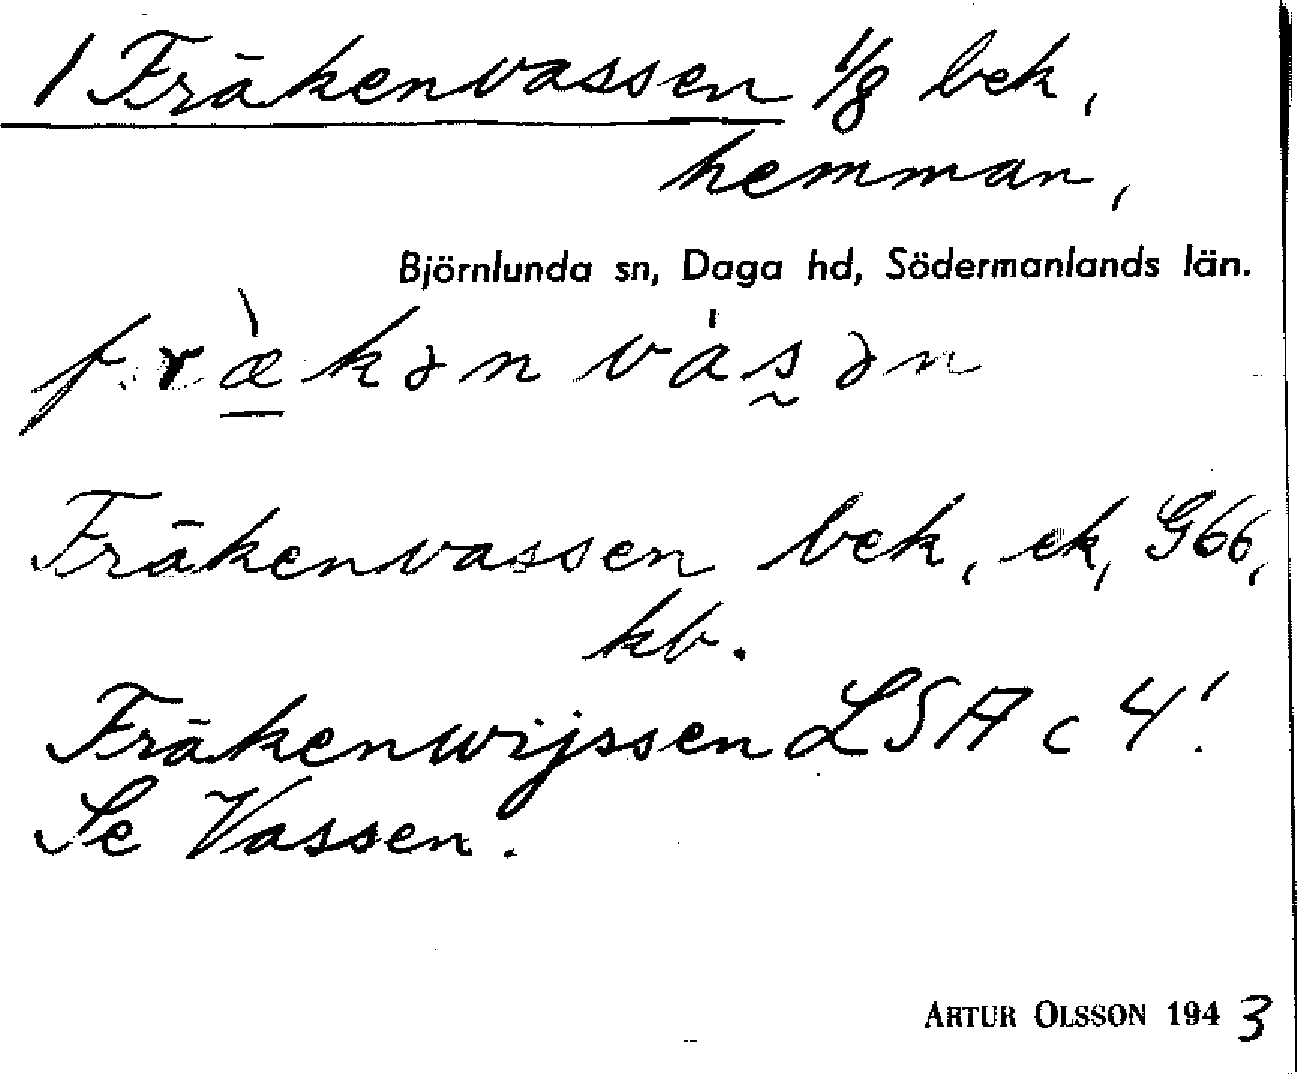 1 Fräkenvassen 1/8 bek,
hemman,
Björnlunda sn, Daga hd, Södermanlands län.
fræ̀kən vásən
Fräkenvassen bek, ek, G66,
kb.
Fräkenwijssen LSA c 4!
Se Vassen.
ARTUR OLSSON 1943